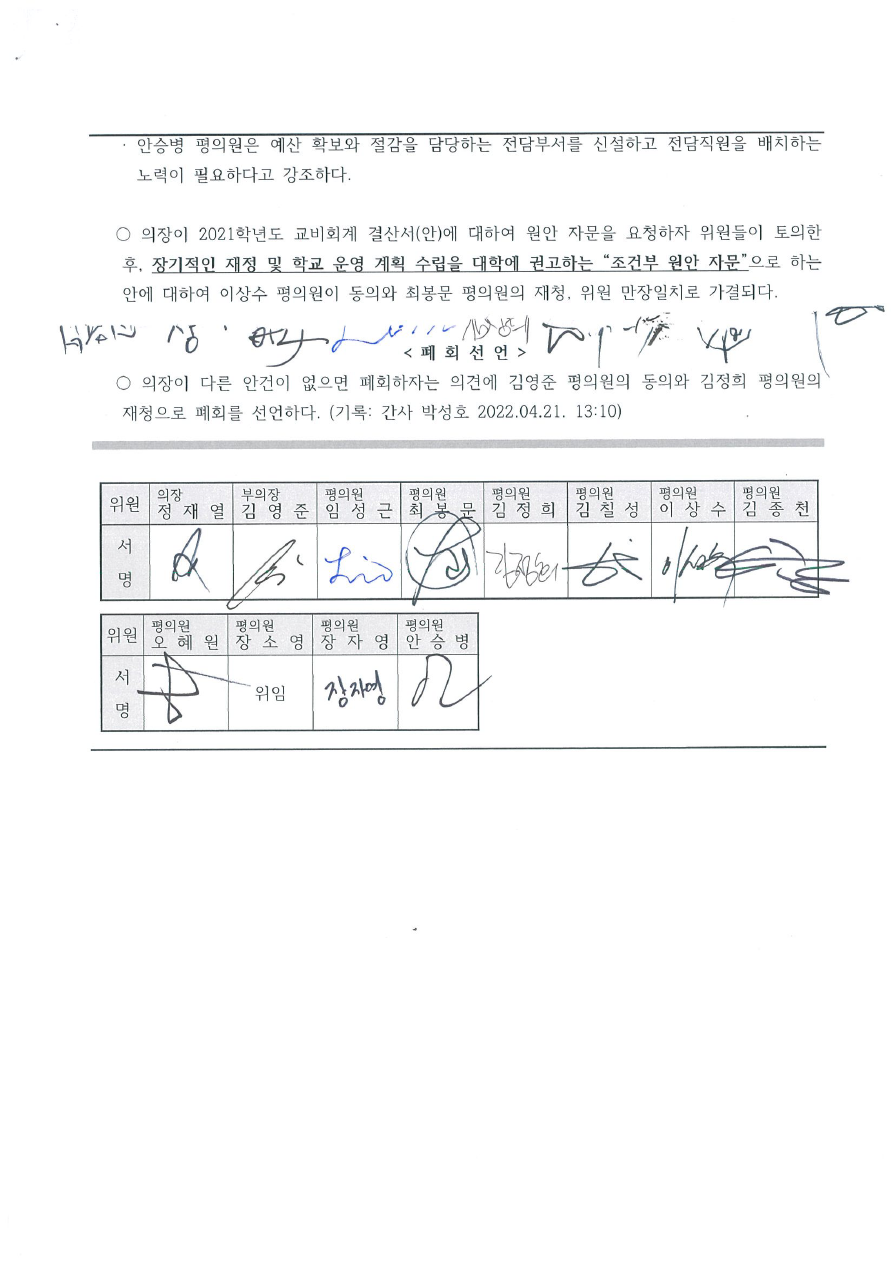 · 안승병 평의원은 예산 확보와 절감을 담당하는 전담부서를 신설하고 전담직원을 배치하는
노력이 필요하다고 강조하다.
○ 의장이 2021학년도 교비회계 결산서(안)에 대하여 원안 자문을 요청하자 위원들이 토의한
후, 장기적인 재정 및 학교 운영 계획 수립을 대학에 권고하는 “조건부 원안 자문”으로 하는
안에 대하여 이상수 평의원이 동의와 최봉문 평의원의 재청, 위원 만장일치로 가결되다.
< 폐 회 선 언 >
○ 의장이 다른 안건이 없으면 폐회하자는 의견에 김영준 평의원의 동의와 김정희 평의원의
재청으로 폐회를 선언하다. (기록: 간사 박성호 2022.04.21. 13:10)
위원 의장 부의장 평의원 평의원 평의원 평의원 평의원 평의원
정 재 열 김 영 준 임 성 근 최 봉 문 김 정 희 김 칠 성 이 상 수 김 종 천
서
명
위원 평의원 평의원 평의원 평의원
오 혜 원 장 소 영 장 자 영 안 승 병
서
위임 장자영
명